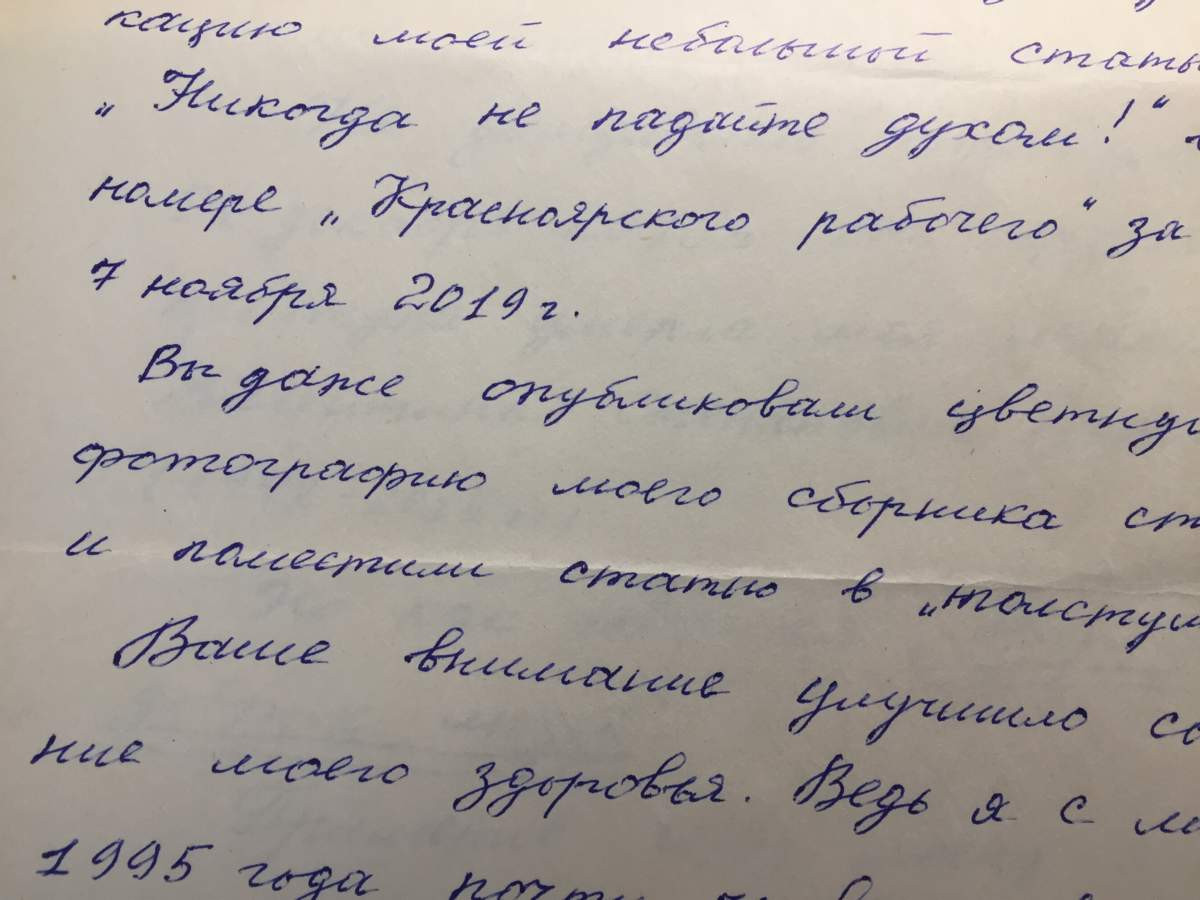 кацию моей небольшой стать
„Никогда не падайте духом!“
номере „Красноярского рабочего“ за
7 ноября 2019 г.
Вы даже опубликовали цветну
фотографию моего сборника ст
и поместили статью в „толстуш
Ваше внимание улучшило со
ние моего здоровья. Ведь я с
1995 года почти